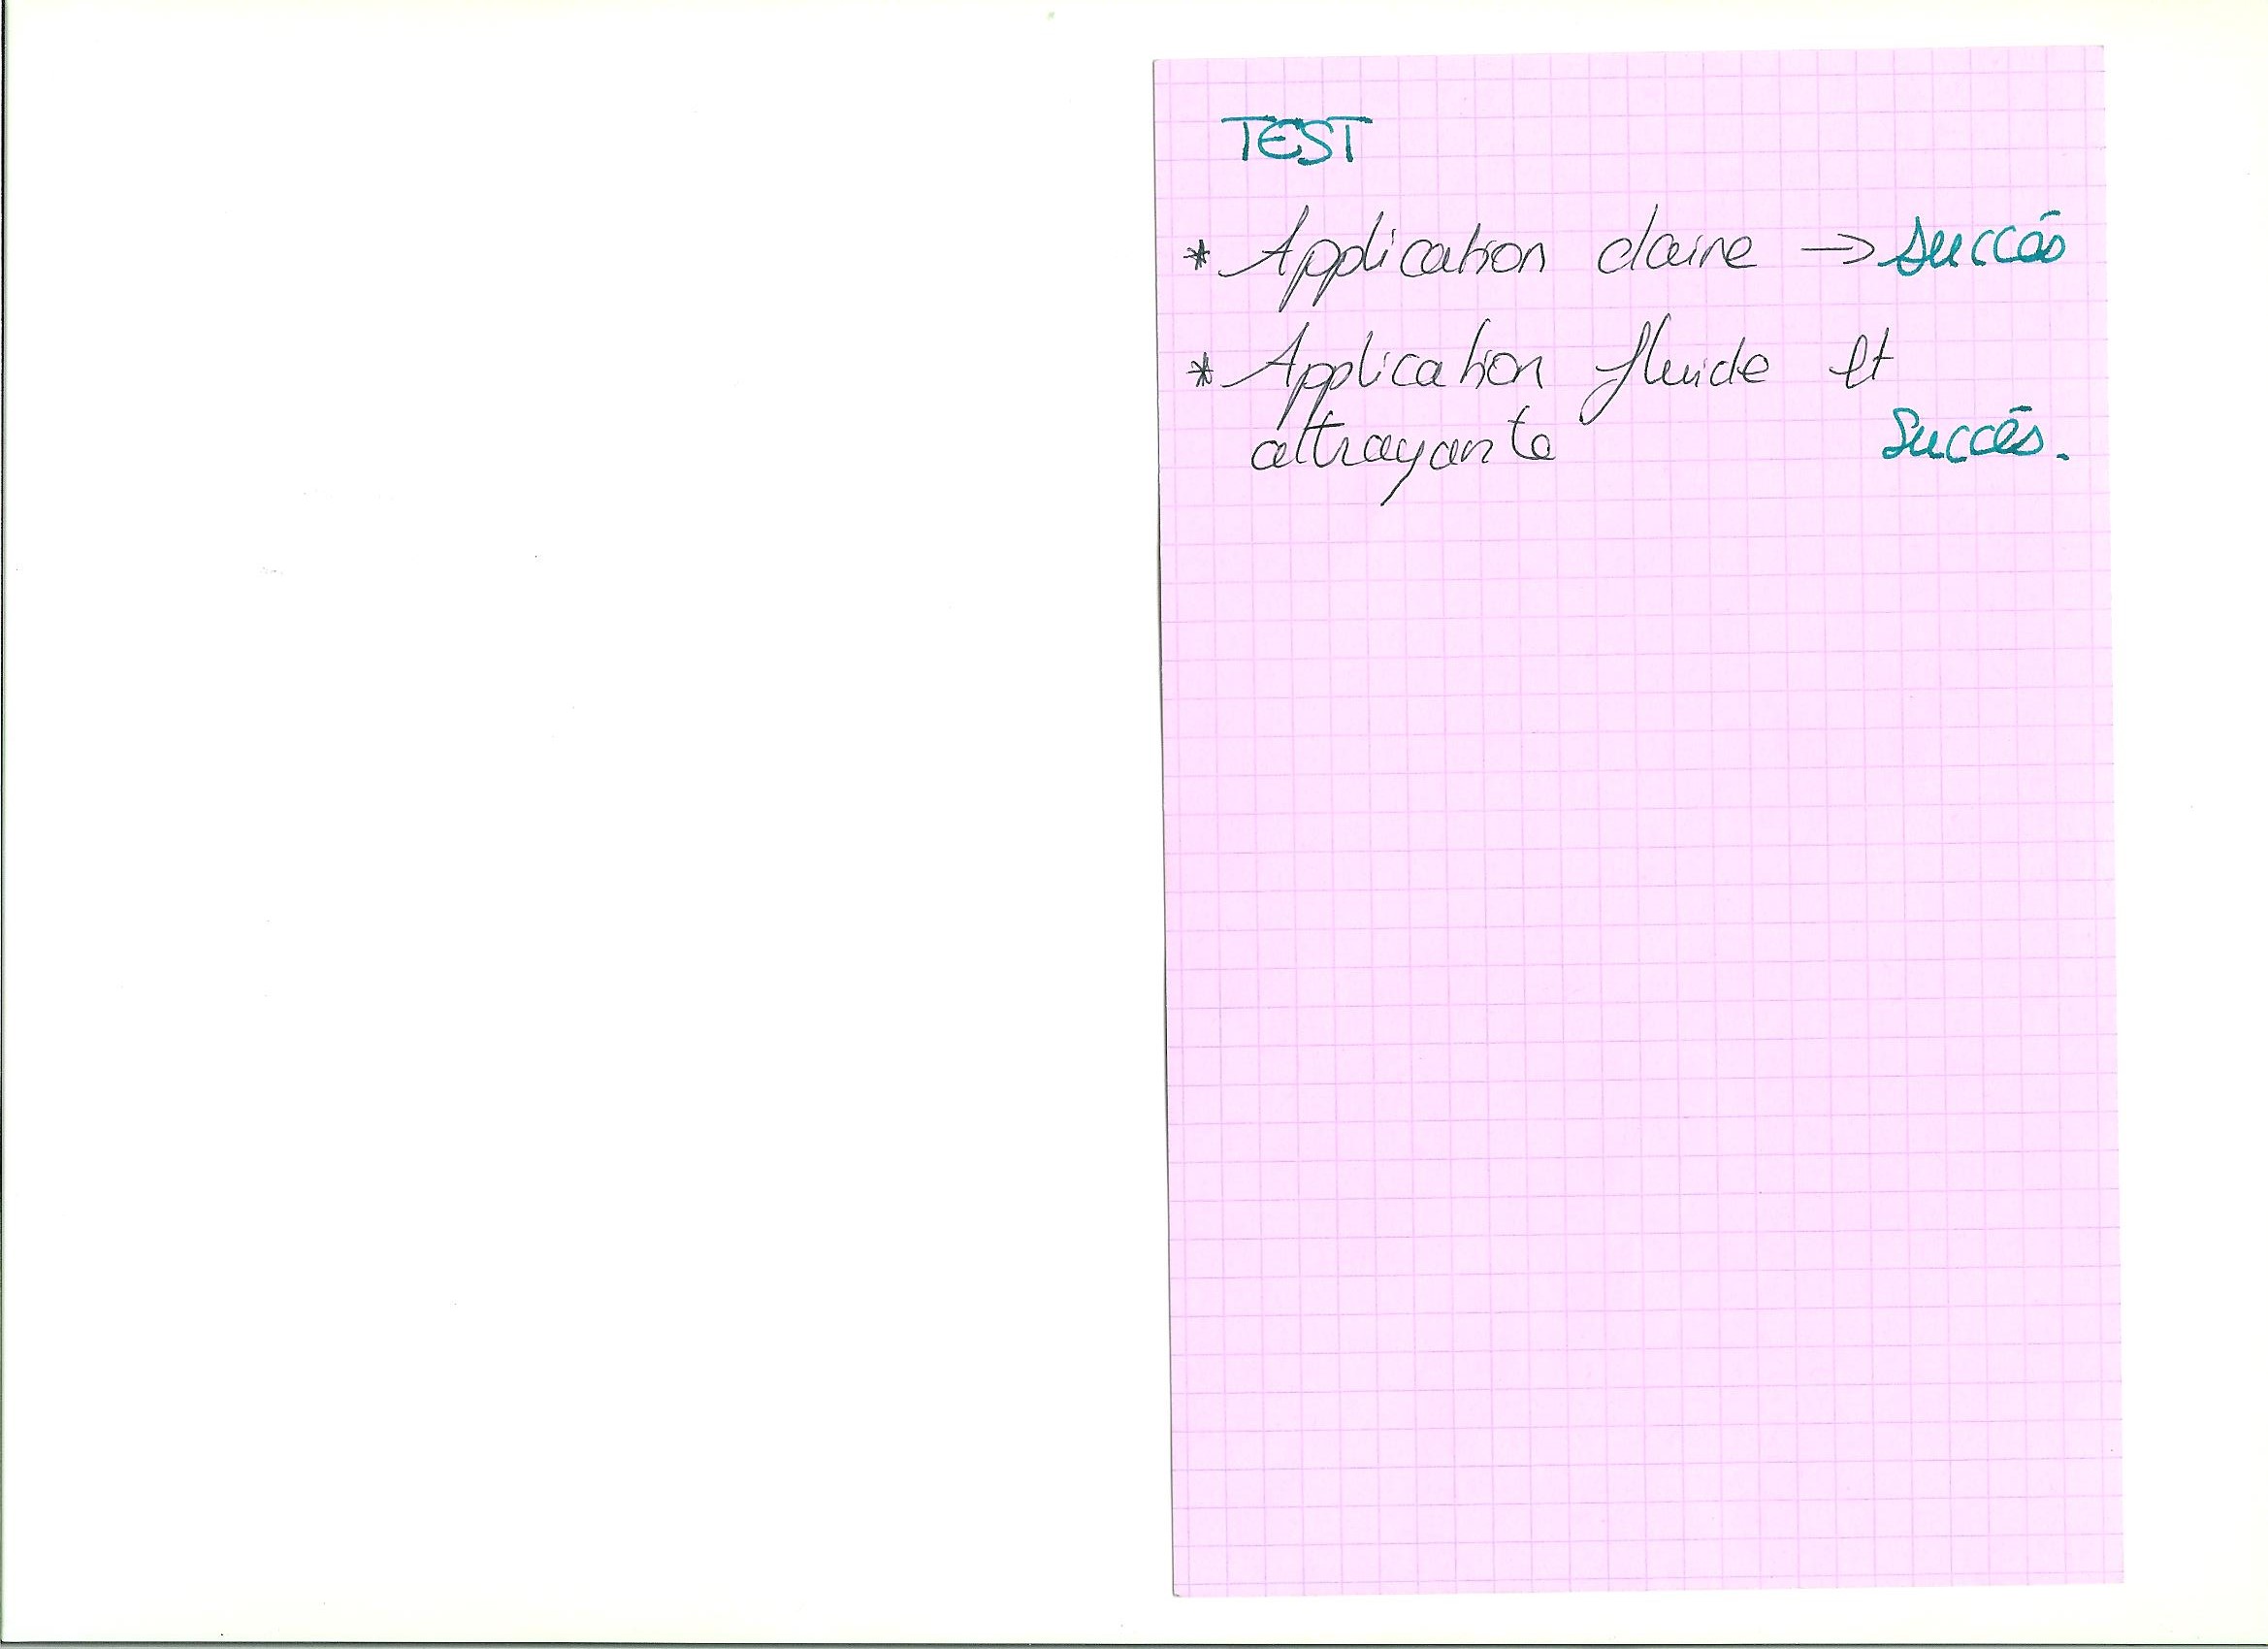 TEST
* Application claire → succès
* Application fluide et
attrayante succès.